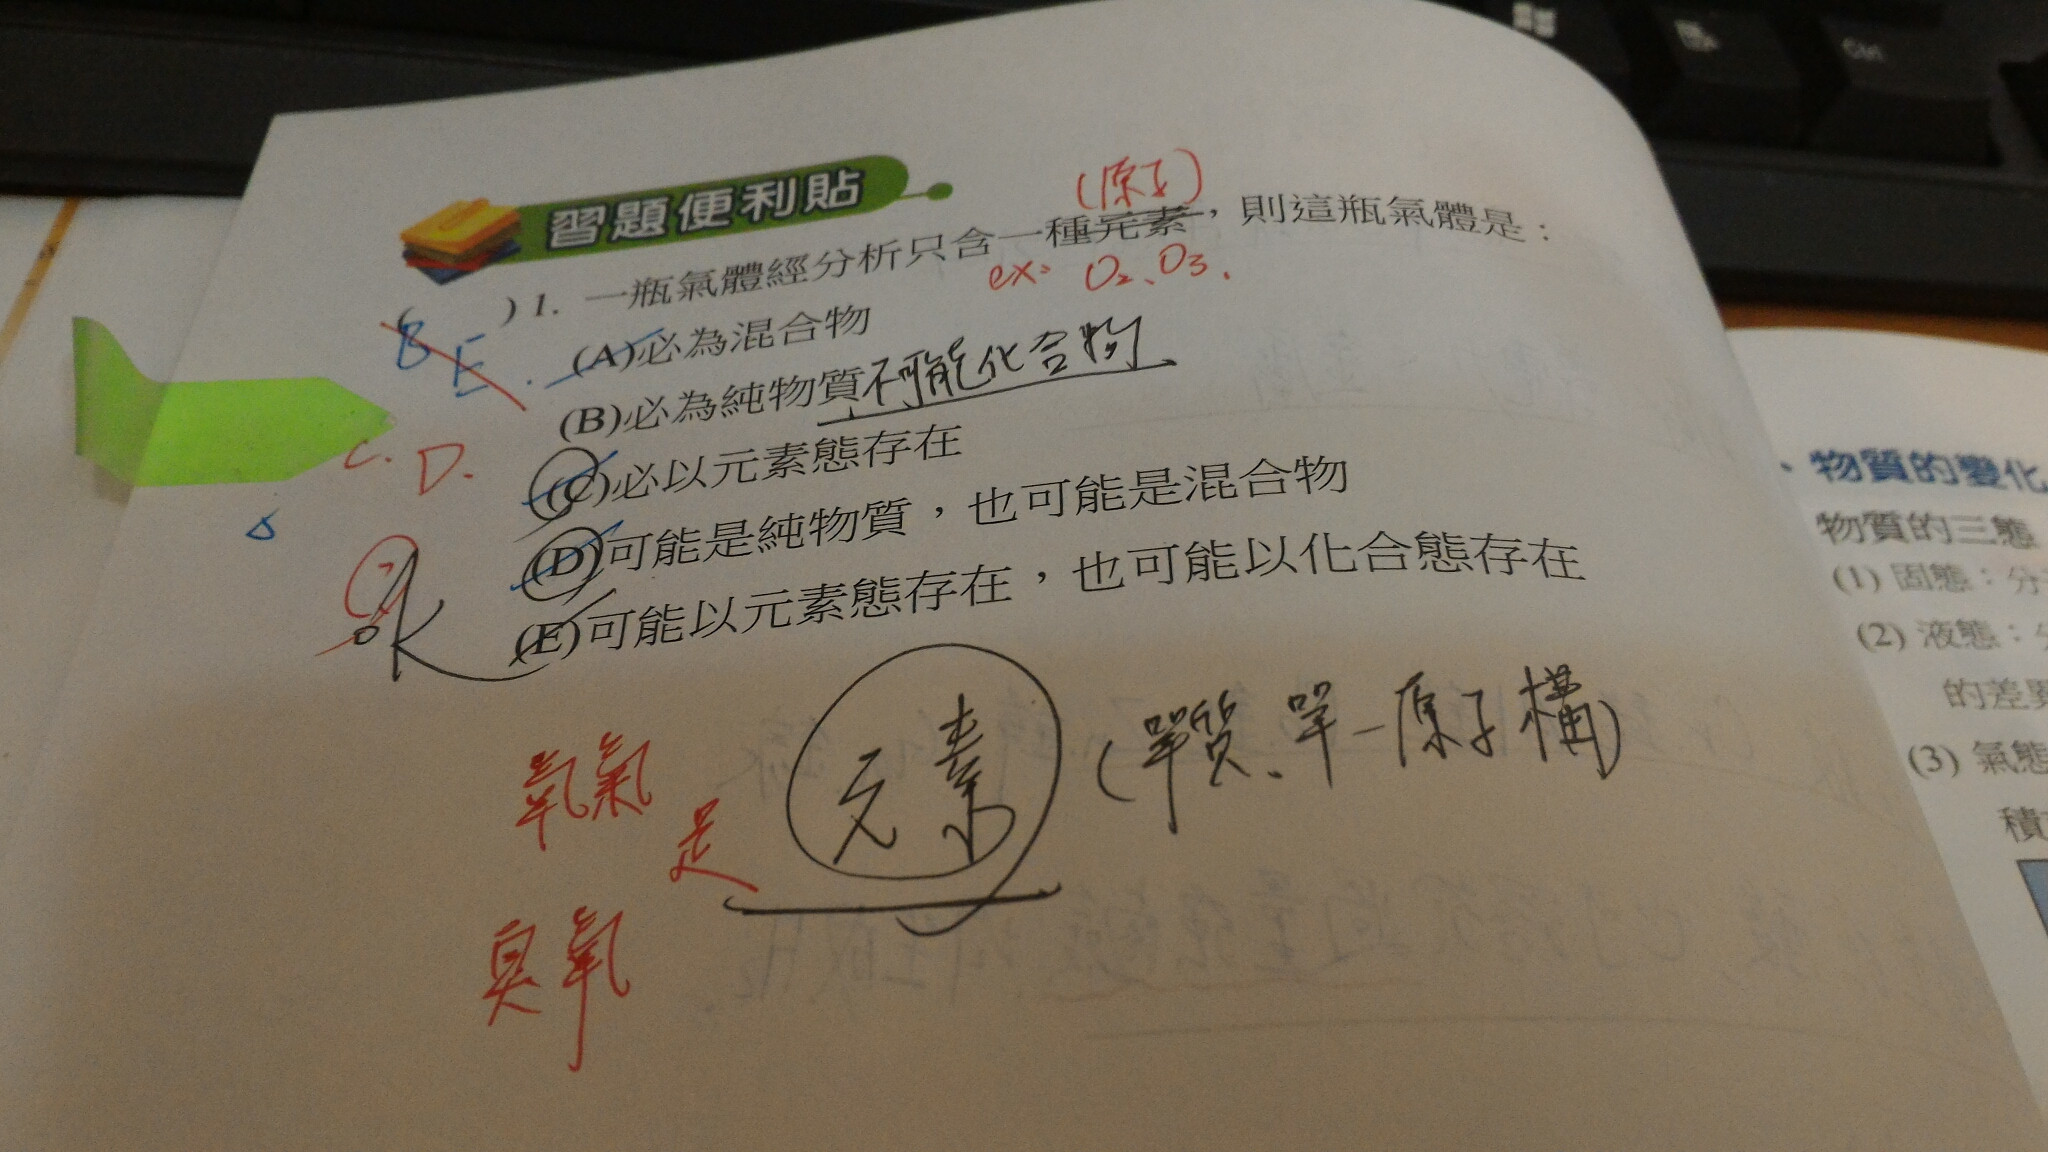 習題便利貼
(原子)
( ) 1. 一瓶氣體經分析只含一種元素，則這瓶氣體是：
ex: O2、O3.
B E.
(A)必為混合物
(B)必為純物質 不可能化合物
C. D.
(C)必以元素態存在
(D)可能是純物質，也可能是混合物
(E)可能以元素態存在，也可能以化合態存在
ok
氧氣
臭氧
是
元素
(單質、單一原子構)
、物質的變化
物質的三態
(1) 固態：分
(2) 液態：分
的差異
(3) 氣態
積
Ctrl